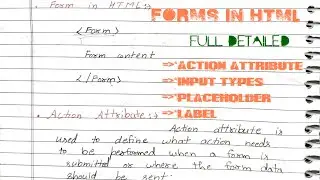 • Form in HTML :-
<Form>
Form content
</Form>
• Action Attribute :-
Action attribute is
used to define what action needs
to be performed when a form is
submitted or where the form data
should be sent.
FORMS IN HTML
FULL DETAILED
ACTION ATTRIBUTE
INPUT TYPES
PLACEHOLDER
LABEL